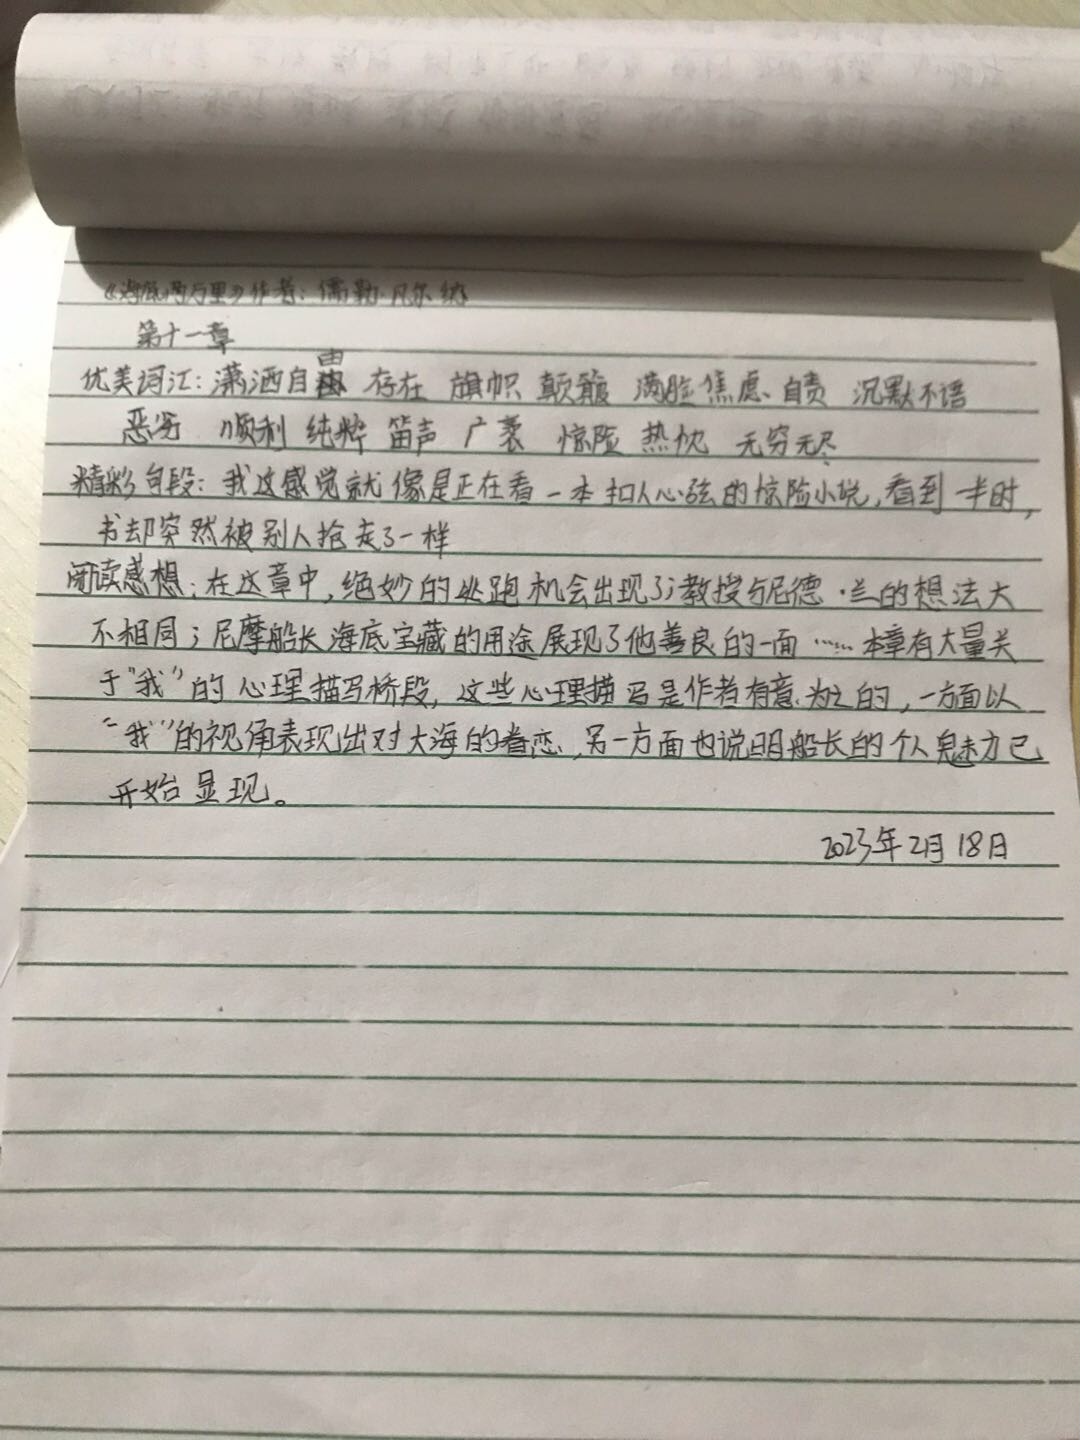 《海底两万里》作者：儒勒·凡尔纳
第十一章
优美词汇：潇洒自由 存在 旗帜 颠簸 满脸焦虑、自责 沉默不语
恶劣 顺利 纯粹 笛声 广袤 惊险 热忱 无穷无尽
精彩句段：我这感觉就像是正在看一本扣人心弦的惊险小说，看到一半时，
书却突然被别人抢走了一样
阅读感想：在这章中，绝妙的逃跑机会出现了；教授与尼德·兰的想法大
不相同；尼摩船长海底宝藏的用途展现了他善良的一面……本章有大量关
于“我”的心理描写桥段，这些心理描写是作者有意为之的，一方面以
“我”的视角表现出对大海的眷恋，另一方面也说明船长的个人魅力已
开始显现。
2023年2月18日